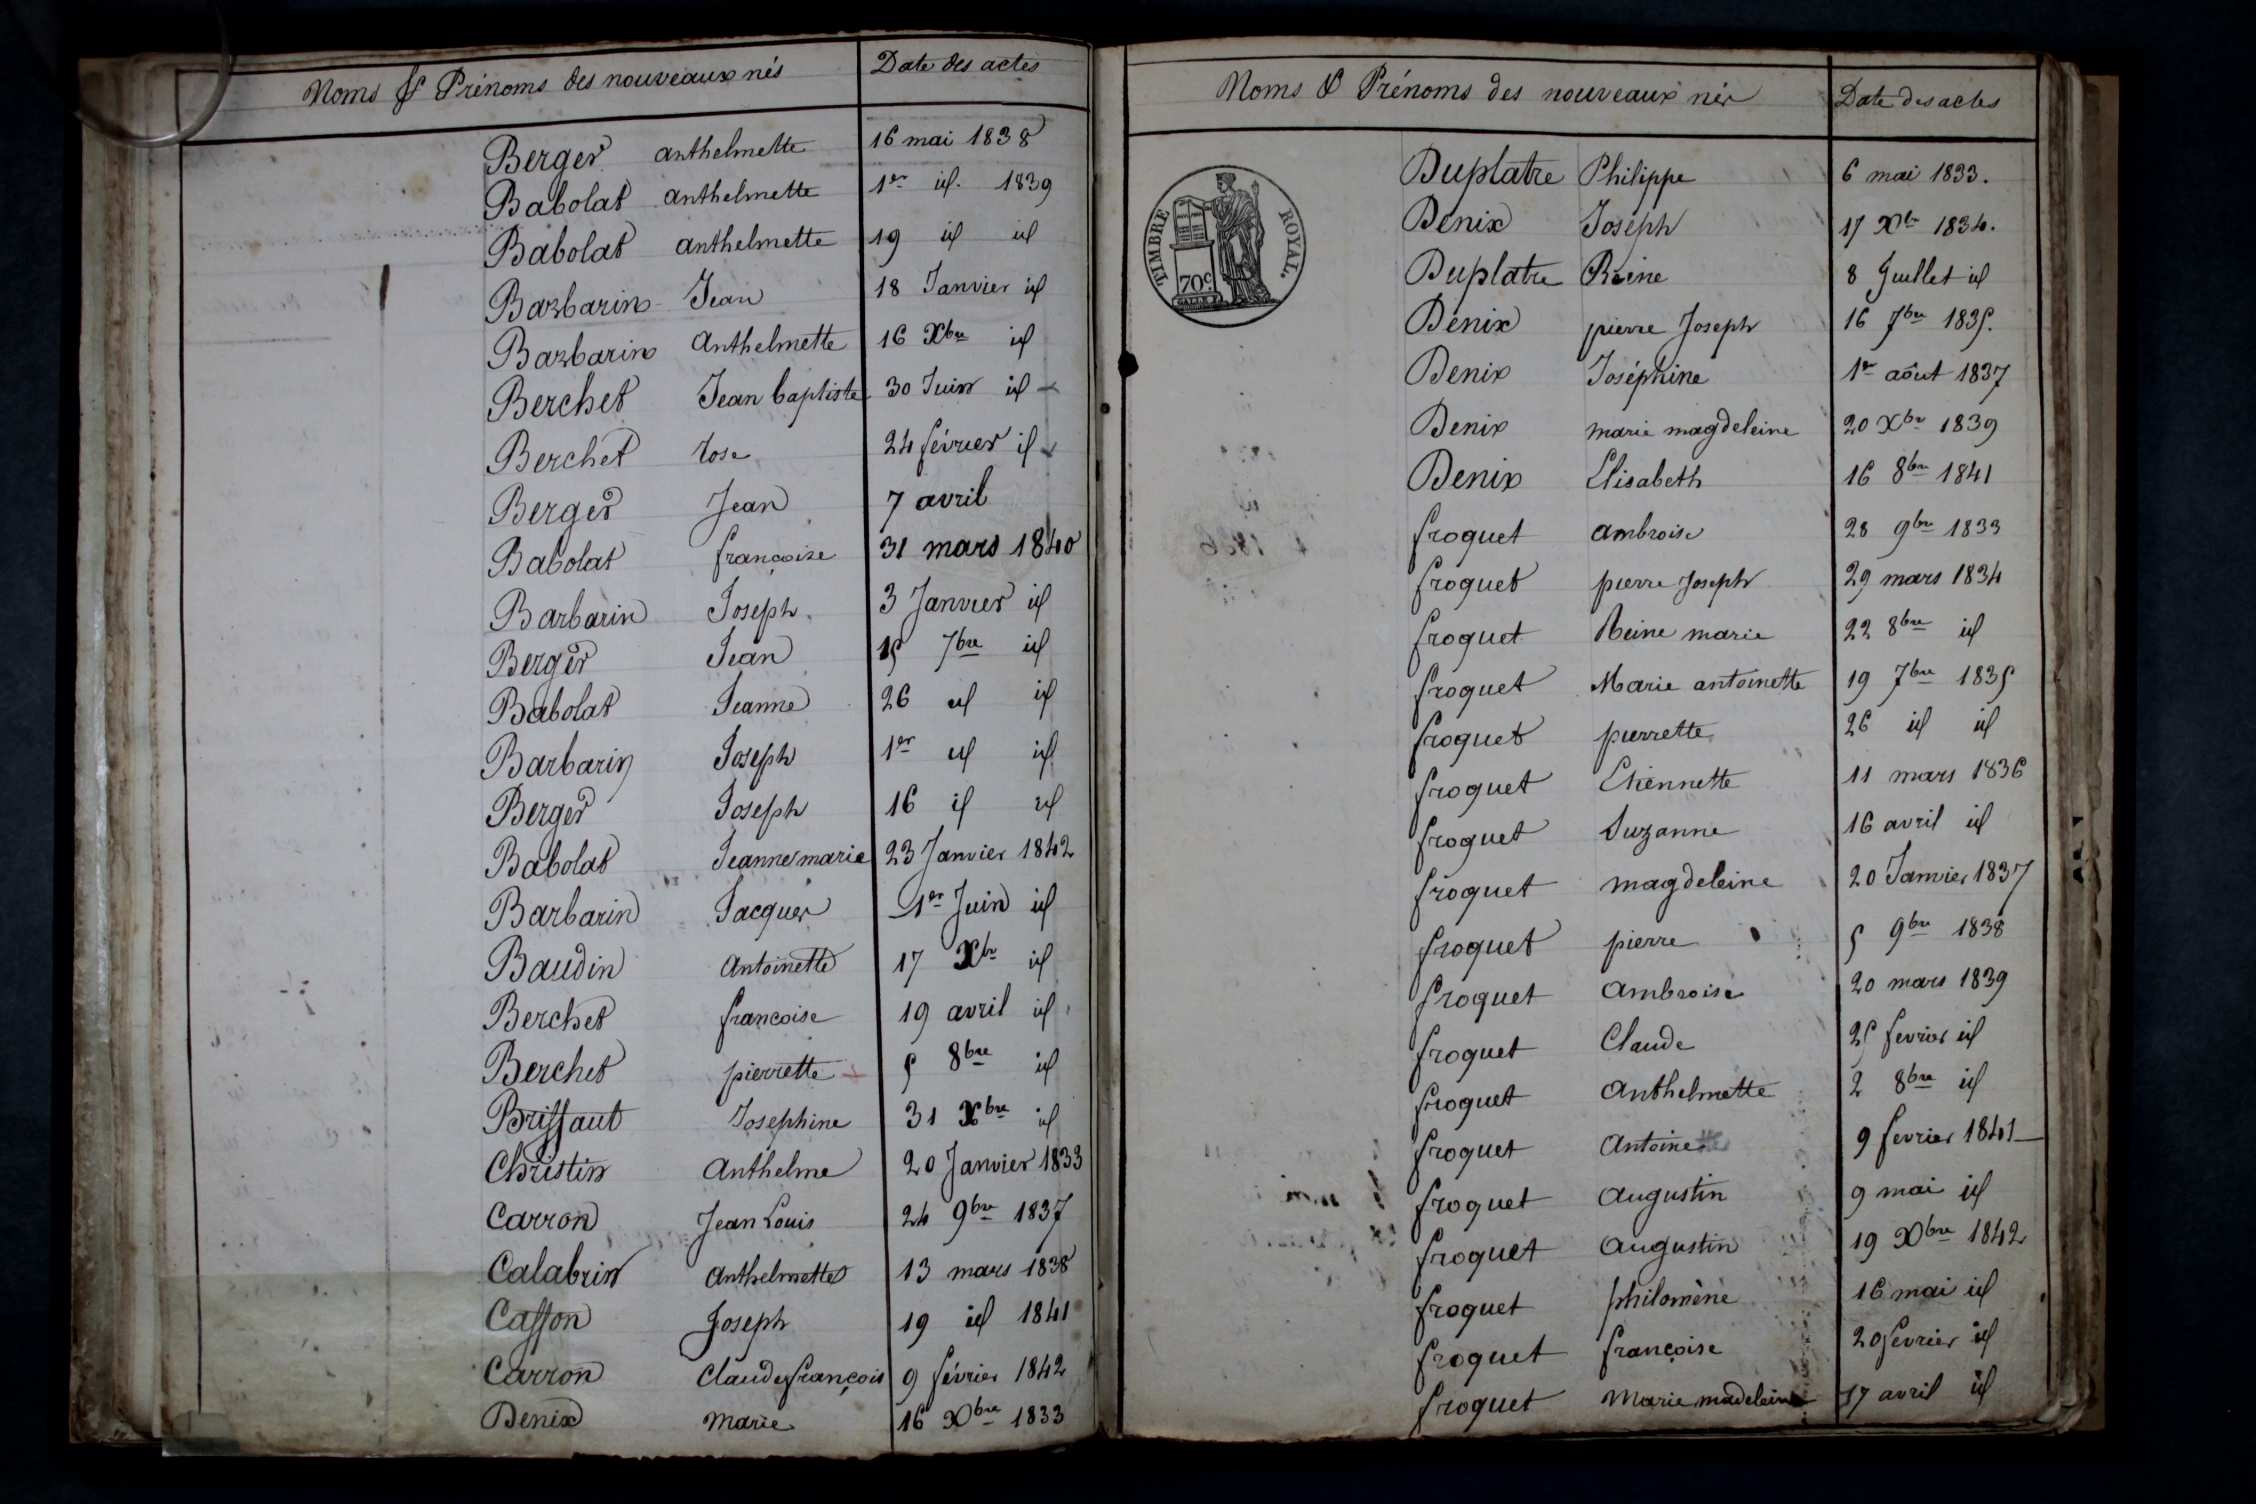 Noms & Prénoms des nouveaux nés Date des actes
Berger anthelmette 16 mai 1838
Babolat anthelmette 1er id. 1839
Babolat anthelmette 19 id id
Barbarin Jean 18 Janvier id
Barbarin Anthelmette 16 Xbre id
Berchet Jean baptiste 30 Juin id
Berchet rose 24 février id
Berger Jean 7 avril
Babolat françoise 31 mars 1840
Barbarin Joseph 3 Janvier id
Berger Jean 15 7bre id
Babolat Jeanne 26 id id
Barbarin Joseph 1er id id
Berger Joseph 16 id id
Babolat Jeanne marie 23 Janvier 1842
Barbarin Jacques 1er Juin id
Baudin Antoinette 17 Xbr id
Berchet françoise 19 avril id
Berchet pierrette 5 8bre id
Brissaut Josephine 31 Xbre id
Christin Anthelme 20 Janvier 1833
Carron Jean Louis 24 9bre 1837
Calabrin Anthelmette 13 mars 1838
Casson Joseph 19 id 1841
Carron Claude françois 9 février 1842
Denix Marie 16 Xbre 1833
Noms & Prénoms des nouveaux nés Date des actes
TIMBRE ROYAL.
70c.
Duplatre Philippe 6 mai 1833.
Denix Joseph 17 Xbr 1834.
Duplatre Reine 8 Juillet id
Denix pierre Joseph 16 7bre 1835.
Denix Joséphine 1er aôut 1837
Denix marie magdeleine 20 Xbre 1839
Denix Elisabeth 16 8bre 1841
froquet ambroise 28 9bre 1833
froquet pierre Joseph 29 mars 1834
froquet Reine marie 22 8bre id
froquet Marie antoinette 19 7bre 1835
froquet pierrette 26 id id
froquet Etiennette 11 mars 1836
froquet Suzanne 16 avril id
froquet magdeleine 20 Janvier 1837
froquet pierre 5 9bre 1838
froquet Ambroise 20 mars 1839
froquet Claude 25 fevrier id
froquet Anthelmette 2 8bre id
froquet Antoine 9 fevrier 1841
froquet Augustin 9 mai id
froquet Augustin 19 Xbre 1842
froquet philomène 16 mai id
froquet françoise 20 fevrier id
froquet Marie madeleine 17 avril id